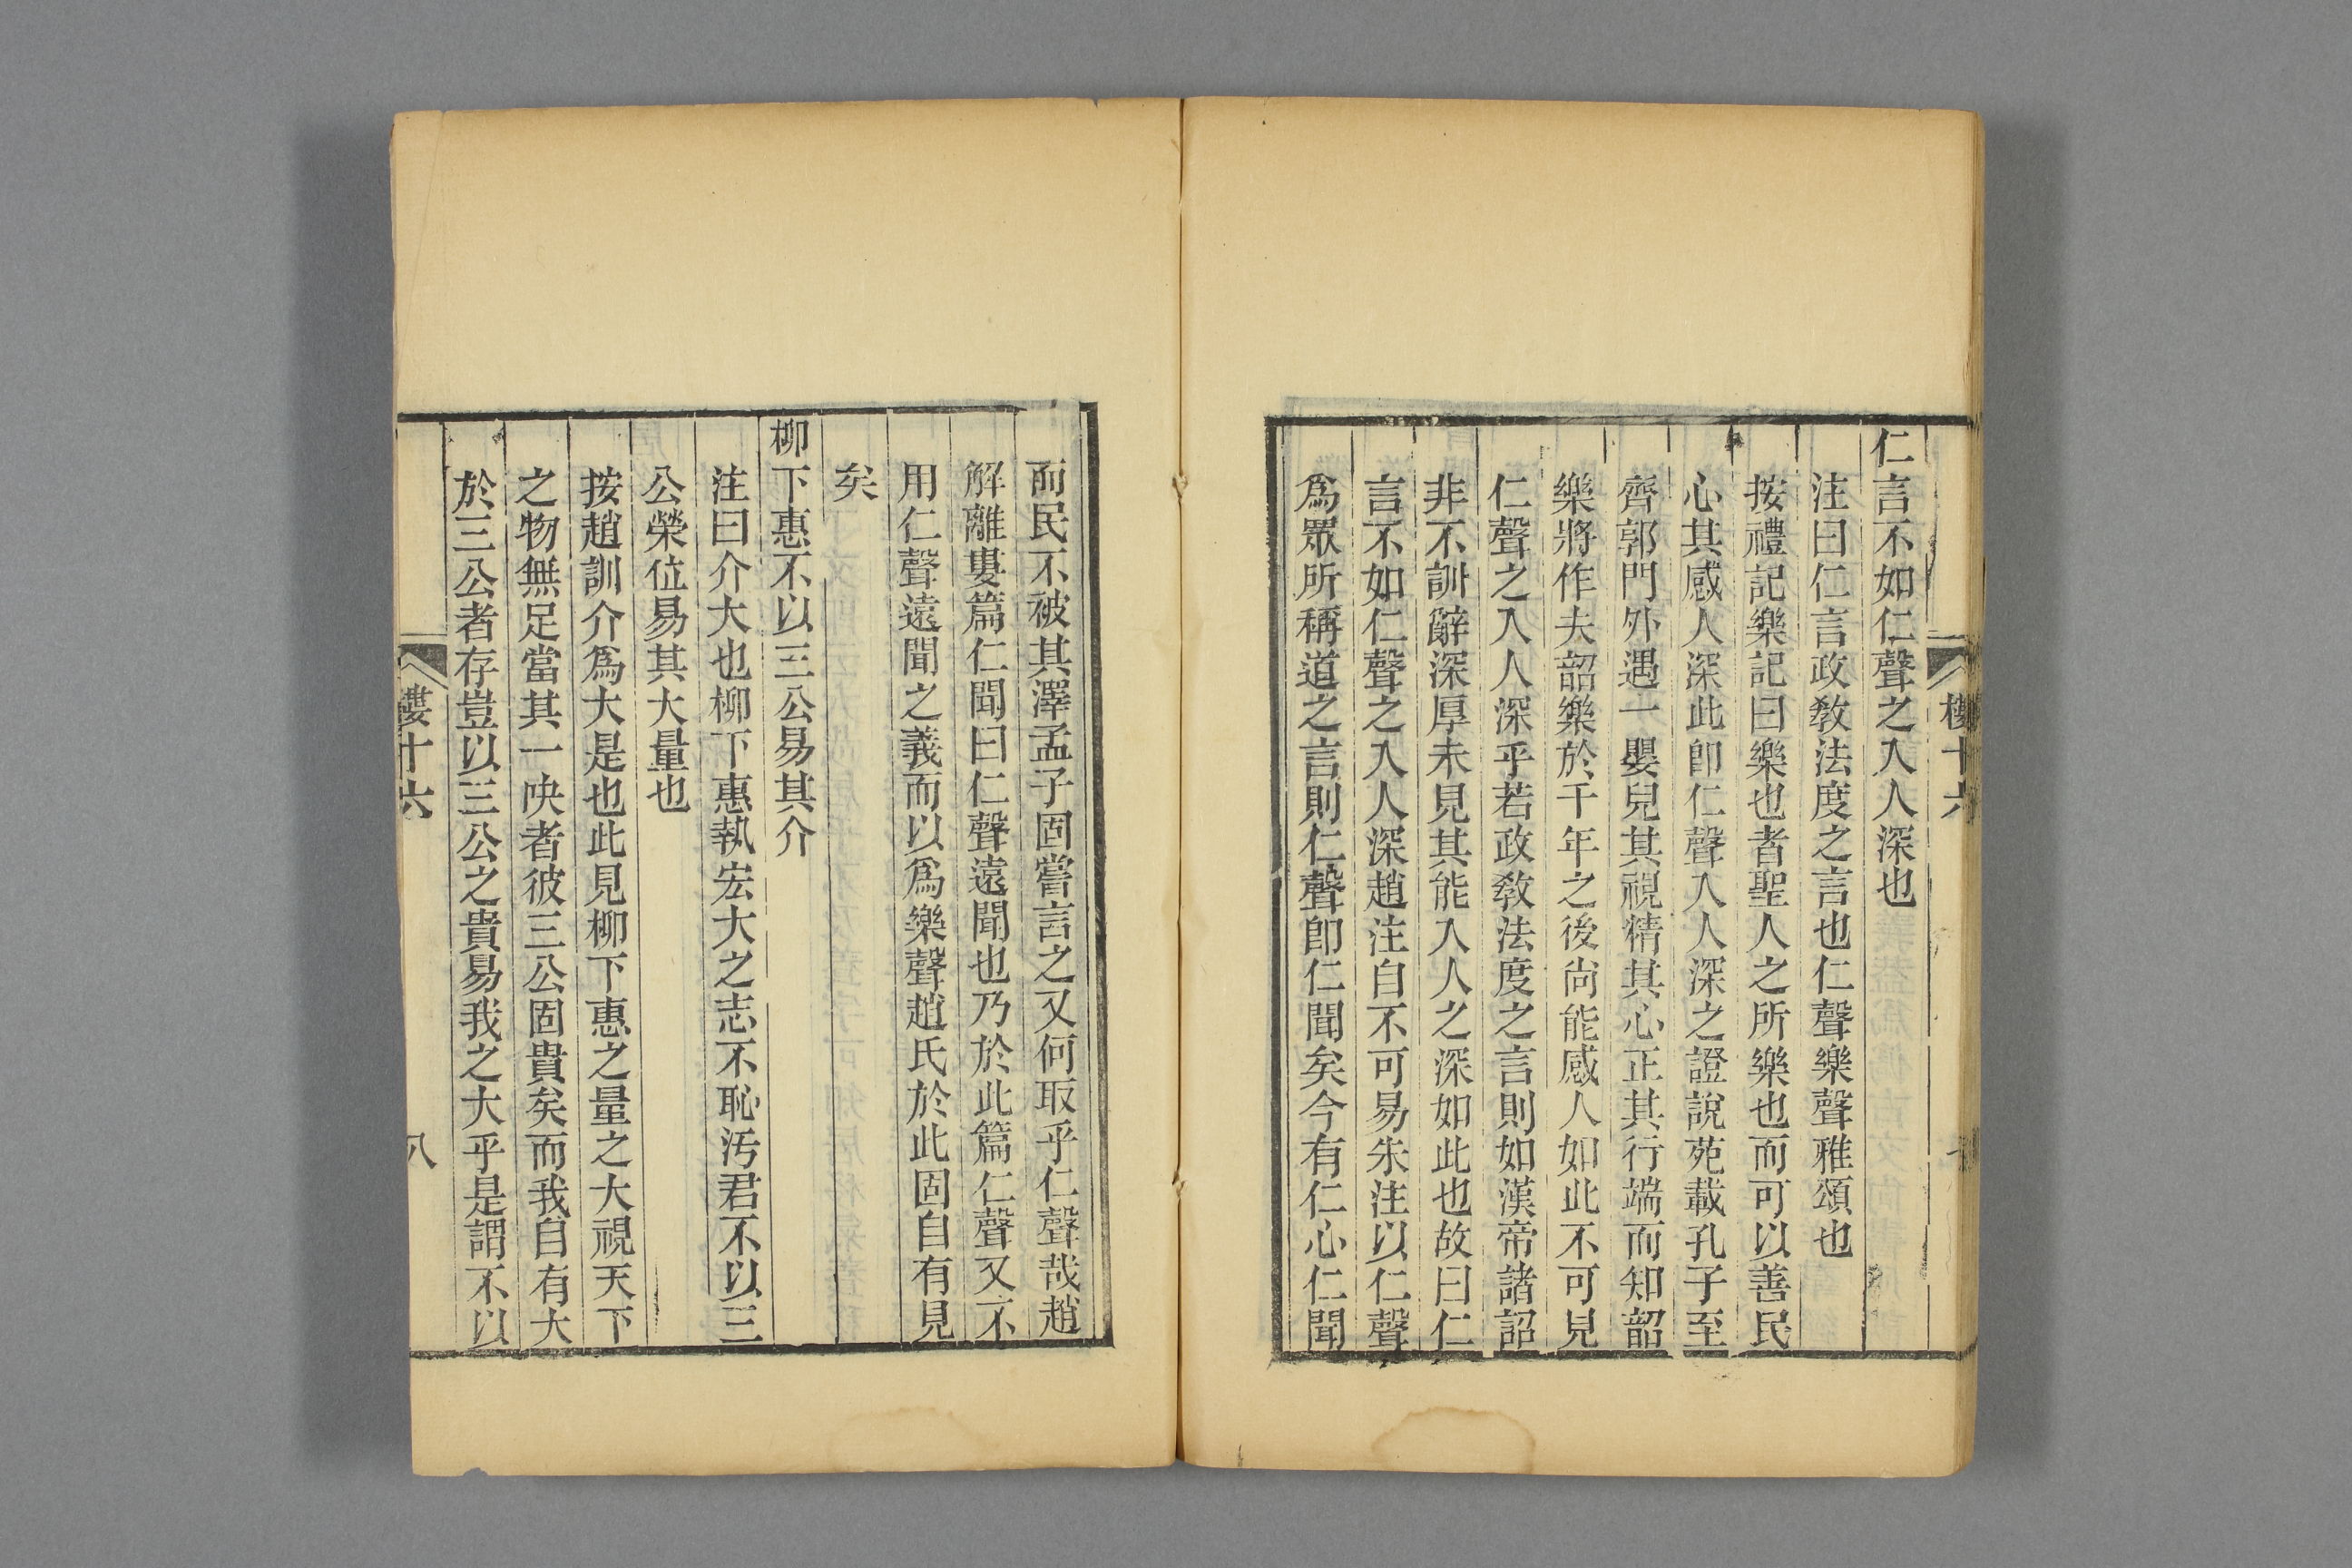 仁言不如仁聲之入人深也
注曰仁言政敎法度之言也仁聲樂聲雅頌也
按禮記樂記曰樂也者聖人之所樂也而可以善民
心其感人深此卽仁聲入人深之證說苑載孔子至
齊郭門外遇一嬰兒其視精其心正其行端而知韶
樂將作夫韶樂於千年之後尙能感人如此不可見
仁聲之入人深乎若政敎法度之言則如漢帝諸詔
非不訓辭深厚未見其能入人之深如此也故曰仁
言不如仁聲之入人深趙注自不可易朱注以仁聲
爲眾所稱道之言則仁聲卽仁聞矣今有仁心仁聞
而民不被其澤孟子固嘗言之又何取乎仁聲哉趙
解離婁篇仁聞曰仁聲遠聞也乃於此篇仁聲又不
用仁聲遠聞之義而以爲樂聲趙氏於此固自有見
矣
柳下惠不以三公易其介
注曰介大也柳下惠執宏大之志不恥汚君不以三
公榮位易其大量也
按趙訓介爲大是也此見柳下惠之量之大視天下
之物無足當其一吷者彼三公固貴矣而我自有大
於三公者存豈以三公之貴易我之大乎是謂不以
樓十六
八